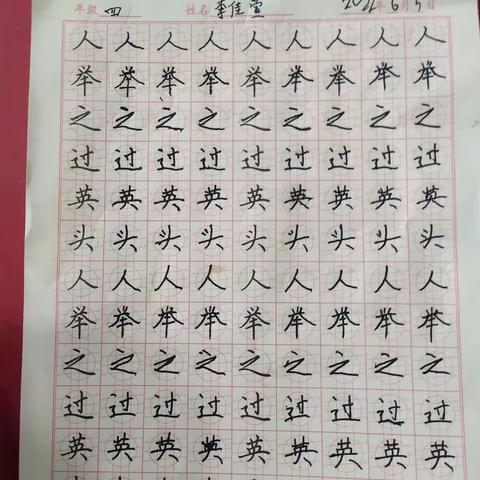 年级 四 姓名 李佳萱 2022年6月5日
人人人人人人人人人
举举举举举举举举举
之之之之之之之之之
过过过过过过过过过
英英英英英英英英英
头头头头头头头头头
人人人人人人人人人
举举举举举举举举举
之之之之之之之之之
过过过过过过过过过
英英英英英英英英英